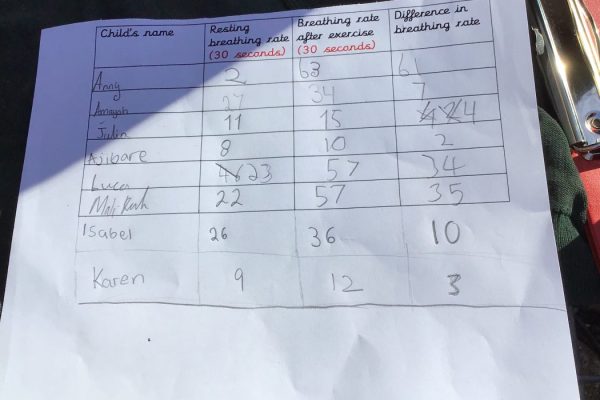 Child's name Resting breathing rate (30 seconds) Breathing rate after exercise (30 seconds) Difference in breathing rate
Anny 2 63 61
Amayah 27 34 7
11 15 4
Ajibare 8 10 2
Luca 23 57 34
22 57 35
Isabel 26 36 10
Karen 9 12 3